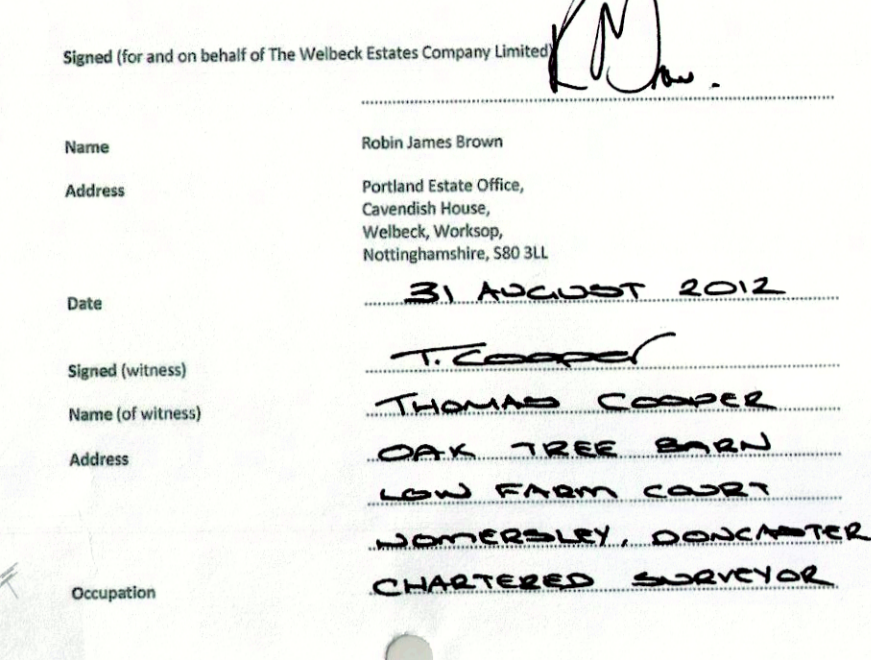 Signed (for and on behalf of The Welbeck Estates Company Limited)
Name Robin James Brown
Address Portland Estate Office,
Cavendish House,
Welbeck, Worksop,
Nottinghamshire, S80 3LL
Date 31 AUGUST 2012
Signed (witness) T. Cooper
Name (of witness) THOMAS COOPER
Address OAK TREE BARN
LOW FARM COURT
WOMERSLEY, DONCASTER
Occupation CHARTERED SURVEYOR